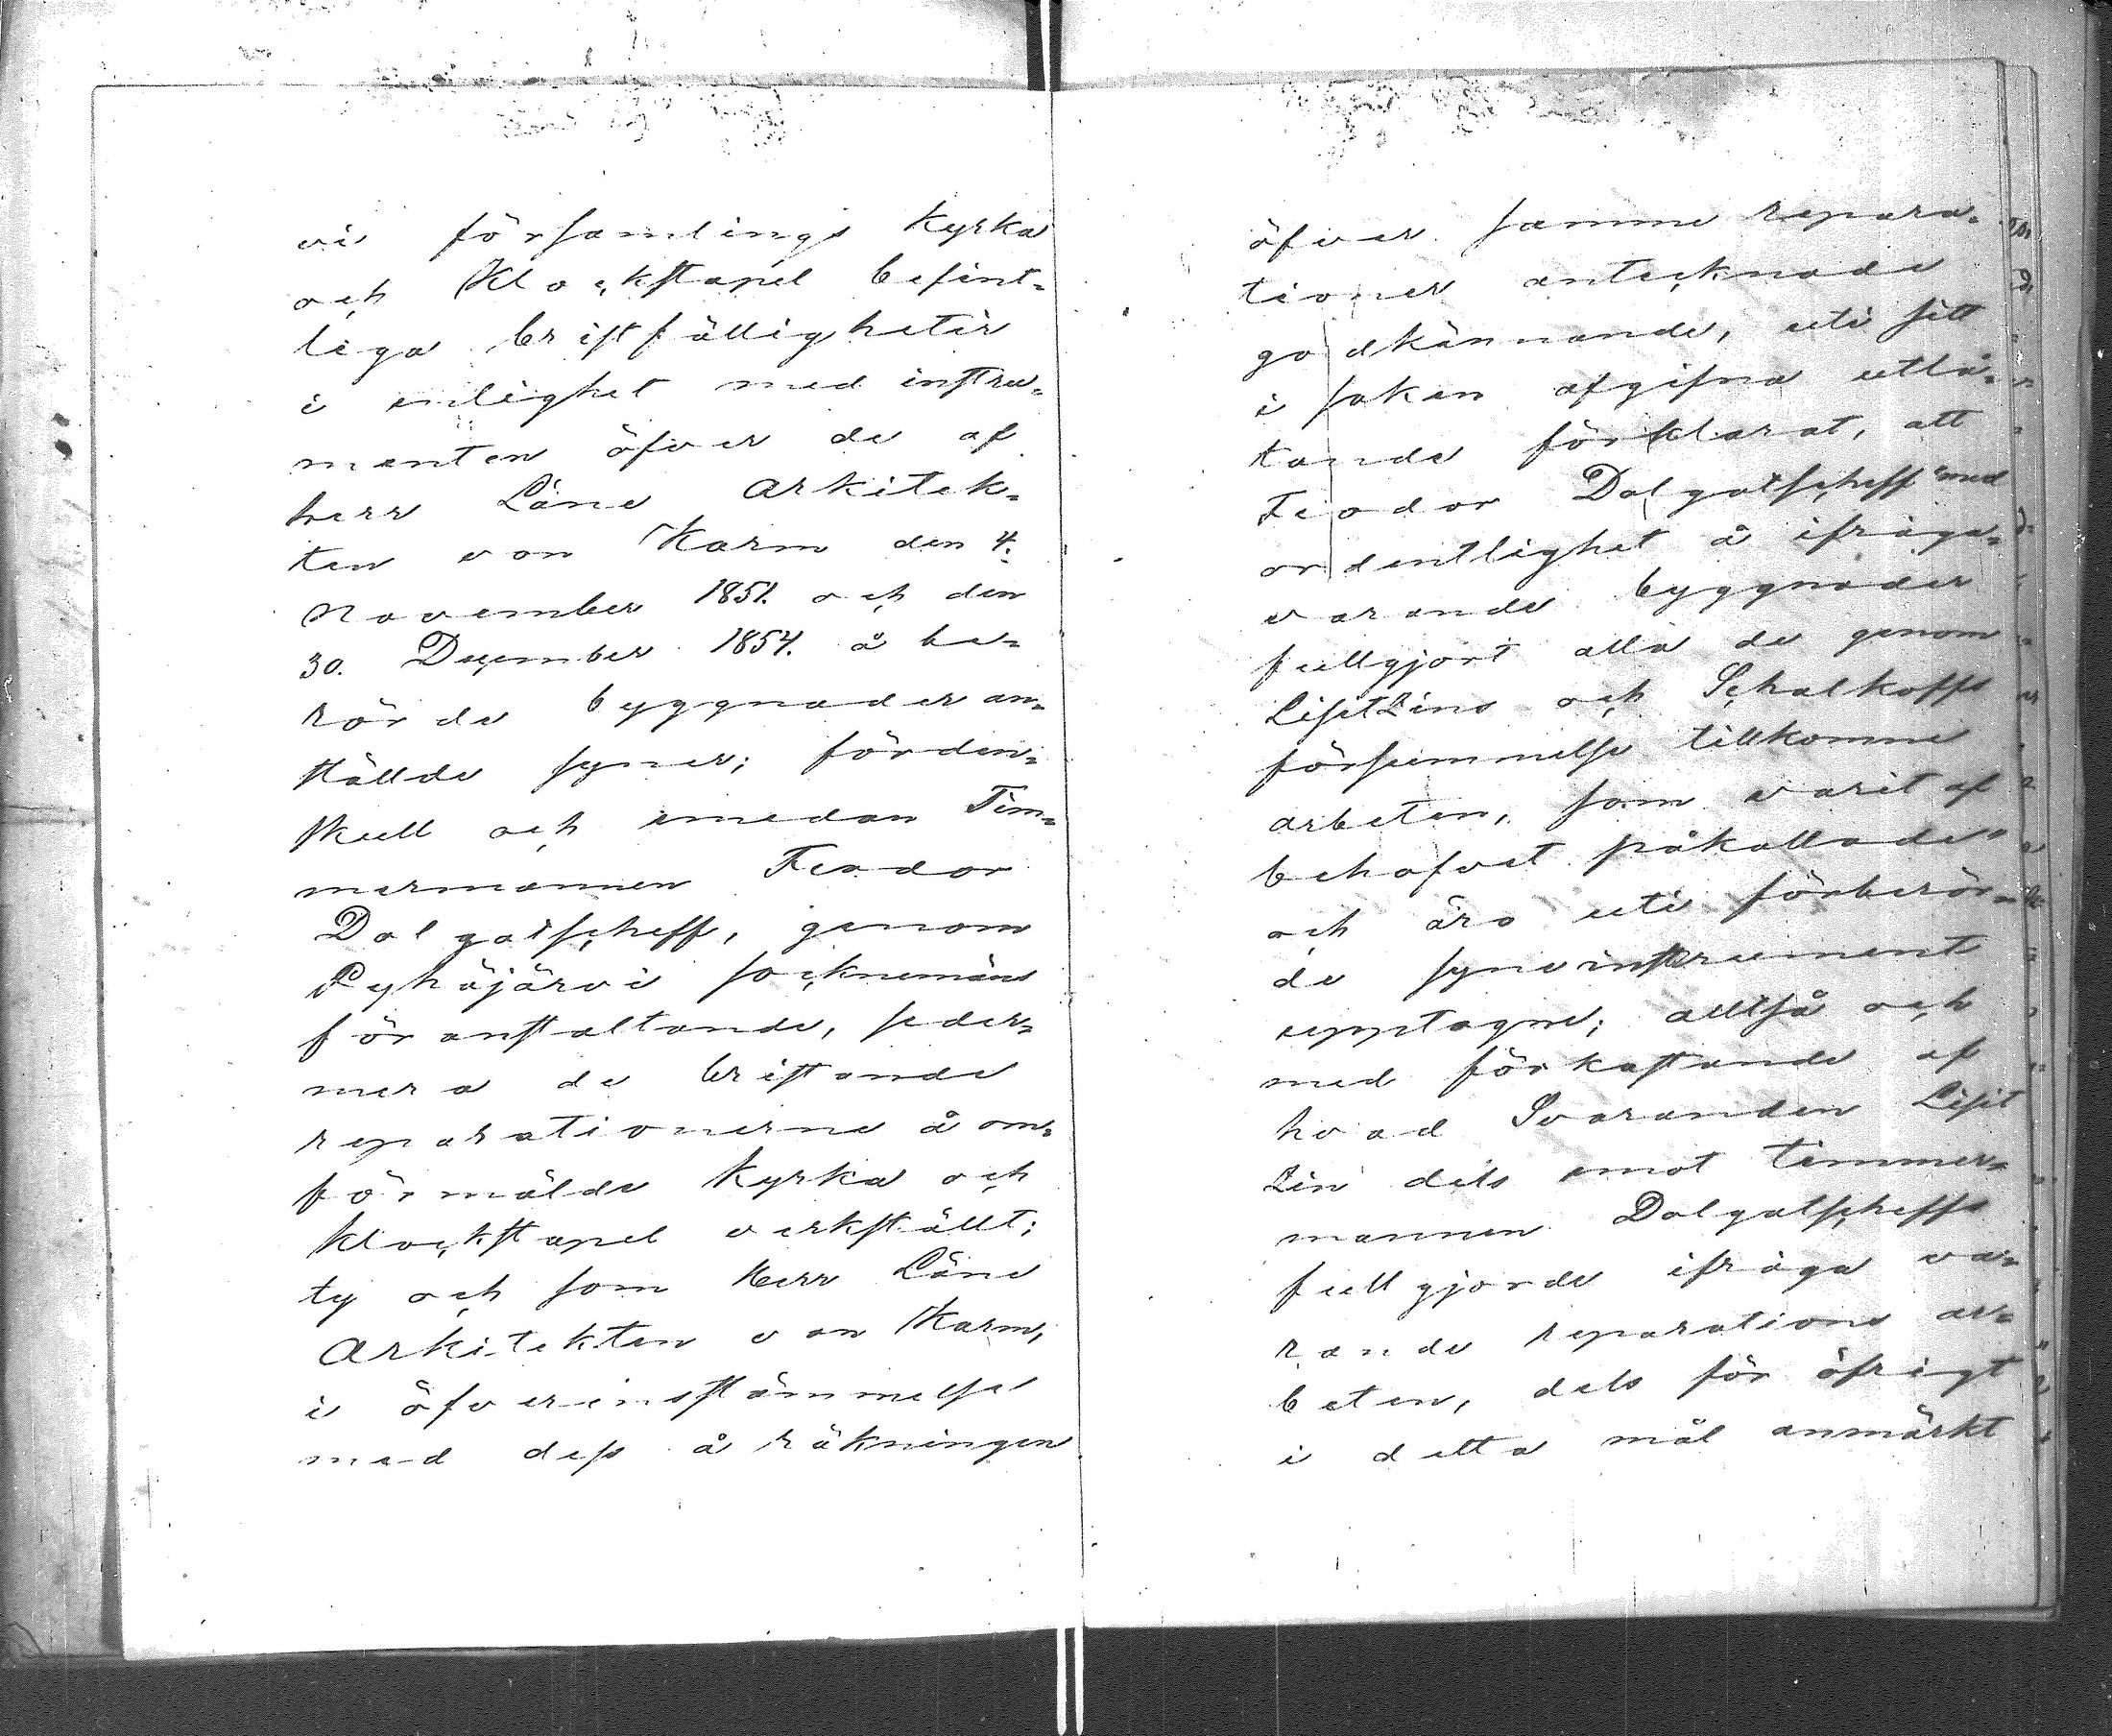 vi församlings Kyrka
och Klockstapel befint-
liga bristfälligheter
i enlighet med instru-
menten öfver de af
herr Läne Arkitek-
ten von Karm den 4.
November 1851. och den
30. December 1854. å be-
rörde byggnader an-
stälde syner; fördens-
skull och emedan Tim-
mermannen Feodor
Dolgatscheff, genom
Pyhäjärvi socknemäns
föranstaltande, seder-
mera de bristande
reparationerne å om-
förmälde Kyrka och
Klockstapel verkställt;
ty och som Herr Läne
Arkitekten von Karm,
i öfverinsstämmelse
med dess å räkningen
öfver samme repara-
tioner antecknade
godkännande, uti sitt
i saken afgifna utlå-
tande förklarat, att
Feodor Dolgatscheff "med
ordentlighet å ifråga-
varande byggnader
fullgjort alla de genom
Lisitzins och Schalkoffs
försummelse tillkomne
arbeten, som varit af
behofvet påkallade"
och äro uti förberör-
de syneinstrument
upptagne; alltså och
med förkastande af
hvad Svaranden Lisit
zin dels emot timmer-
mannen Dolgatscheffs
fullgjorde ifråga va-
rande reparations ar-
beten, dels för öfrigt
i detta mål anmärkt